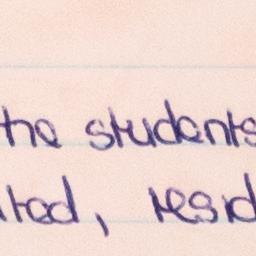 the students
ted, resid